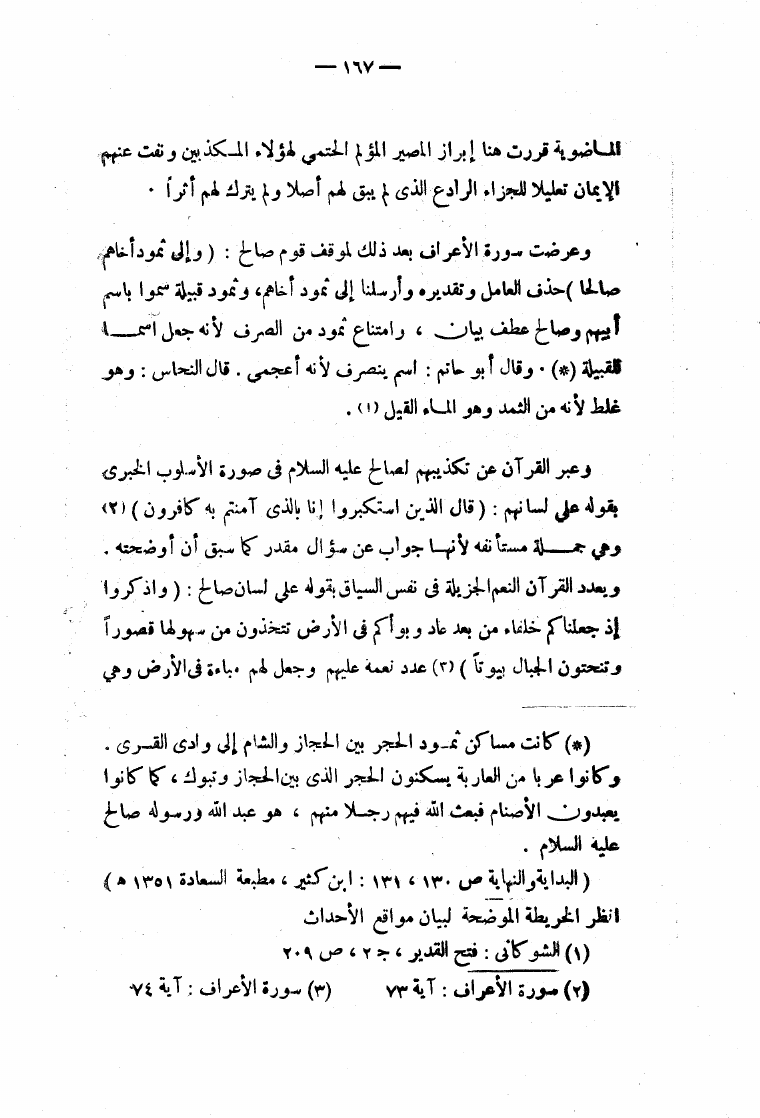 — ١٦٧ —
الماضوية قررت هنا إبراز المصير المؤلم الحتمي لهؤلاء المكذبين ونفت عنهم
الإيمان تعليلا للجزاء الرادع الذى لم يبق لهم أصلا ولم يترك لهم أثراً .
وعرضت سورة الأعراف بعد ذلك لموقف قوم صالح : ( وإلى ثمود أخاهم
صالحا ) حذف العامل وتقديره وأرسلنا إلى ثمود أخاهم، وثمود قبيلة سموا باسم
أبيهم وصالح عطف بيان ، وامتناع ثمود من الصرف لأنه جعل أسما
للقبيلة (*) . وقال أبو حاتم : اسم ينصرف لأنه أعجمى . قال النحاس : وهو
غلط لأنه من الثمد وهو الماء القيل (١) .
وعبر القرآن عن تكذيبهم لصالح عليه السلام فى صورة الأسلوب الخبرى
بقوله على لسانهم : ( قال الذين استكبروا إنا بالذى آمنتم به كافرون ) (٢)
وهي جملة مستأنفه لأنها جواب عن سؤال مقدر كما سبق أن أوضحته .
ويعدد القرآن النعم الجزيلة فى نفس السياق بقوله علي لسان صالح : ( واذكروا
إذ جعلناكم خلفاء من بعد عاد وبوأكم فى الأرض تتخذون من سهولها قصوراً
وتنحتون الجبال بيوتاً ) (٣) عدد نعمه عليهم وجعل لهم مباءة فى الأرض وهي
(*) كانت مساكن ثمود الحجر بين الحجاز والشام إلى وادى القسرى .
وكانوا عربا من العاربة يسكنون الحجر الذى بين الحجاز وتبوك ، كما كانوا
يعبدون الأصنام فبعث الله فيهم رجلا منهم ، هو عبد الله ورسوله صالح
عليه السلام .
( البداية والنهاية ص ١٣٠ ، ١٣١ : ابن كثير ، مطبعة السعادة ١٣٥١ ه )
انظر الخريطة الموضحة لبيان مواقع الأحداث
(١) الشوكانى : فتح القدير ، ج ٢ ، ص ٢٠٩
(٢) سورة الأعراف : آية ٧٣ (٣) سورة الأعراف : آية ٧٤